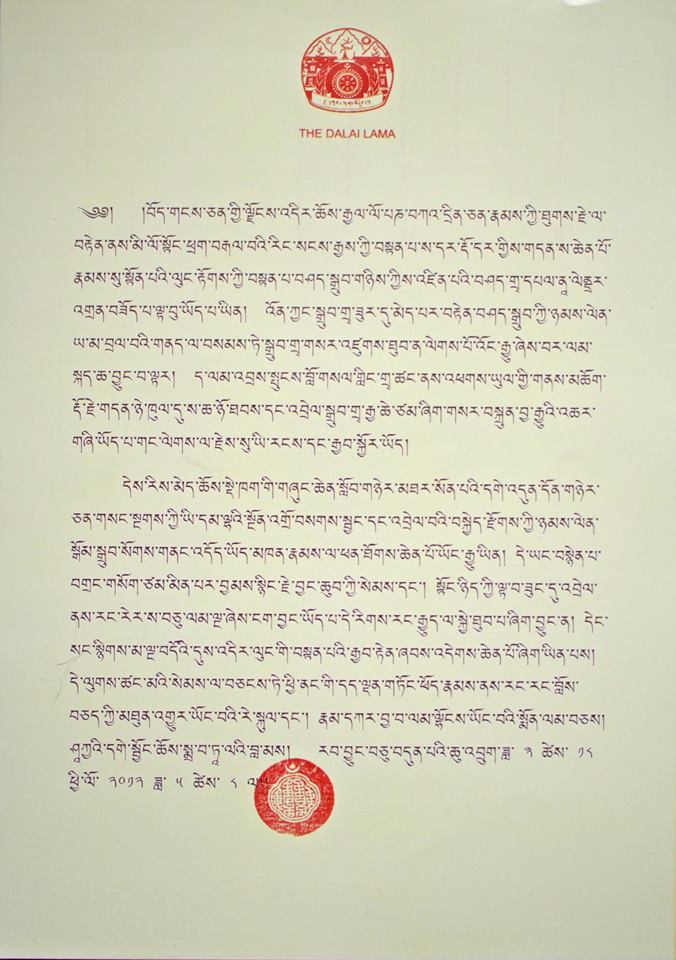 THE DALAI LAMA
༄༅། །བོད་གངས་ཅན་གྱི་ལྗོངས་འདིར་ཆོས་རྒྱལ་ལོ་པཎ་བཀའ་དྲིན་ཅན་རྣམས་ཀྱི་ཐུགས་རྗེ་ལ་
བརྟེན་ནས་མི་ལོ་སྟོང་ཕྲག་བརྒལ་བའི་རིང་སངས་རྒྱས་ཀྱི་བསྟན་པ་ས་དར་རྡོ་དར་གྱིས་གདན་ས་ཆེན་པོ་
རྣམས་སུ་སྟོན་པའི་ལུང་རྟོགས་ཀྱི་བསྟན་པ་བཤད་སྒྲུབ་གཉིས་ཀྱིས་འཛིན་པའི་བཤད་གྲྭ་དཔལ་ནཱ་ལེནྡྲར་
འགྲན་བཟོད་པ་ལྟ་བུ་ཡོད་པ་ཡིན། འོན་ཀྱང་སྒྲུབ་གྲྭ་ཟུར་དུ་མེད་པར་བརྟེན་བཤད་སྒྲུབ་ཀྱི་ཉམས་ལེན་
ཡ་མ་བྲལ་བའི་གནད་ལ་བསམས་ཏེ་སྒྲུབ་གྲྭ་གསར་འཛུགས་ཐུབ་ན་ལེགས་པོ་འོང་རྒྱུ་ཞེས་བར་ལམ་
སྐད་ཆ་བྱུང་བ་ལྟར། ད་ལམ་འབྲས་སྤུངས་བློ་གསལ་གླིང་གྲྭ་ཚང་ནས་འཕགས་ཡུལ་གྱི་གནས་མཆོག་
རྡོ་རྗེ་གདན་ཉེ་ཁུལ་དུ་ས་ཆ་ཉོ་ཐབས་དང་འབྲེལ་སྒྲུབ་གྲྭ་རྒྱ་ཆེ་ཙམ་ཞིག་གསར་བསྐྲུན་བྱ་རྒྱུའི་འཆར་
གཞི་ཡོད་པ་གང་ལེགས་ལ་རྗེས་སུ་ཡི་རངས་དང་རྒྱབ་སྐྱོར་ཡོད།
དེས་རིས་མེད་ཆོས་སྡེ་ཁག་གི་གཞུང་ཆེན་སློབ་གཉེར་མཐར་སོན་པའི་དགེ་འདུན་དོན་གཉེར་
ཅན་གསང་སྔགས་ཀྱི་ཡི་དམ་ལྷའི་སྔོན་འགྲོ་བསགས་སྦྱང་དང་འབྲེལ་བའི་བསྐྱེད་རྫོགས་ཀྱི་ཉམས་ལེན་
སྒོམ་སྒྲུབ་སོགས་གནང་འདོད་ཡོད་མཁན་རྣམས་ལ་ཕན་ཐོགས་ཆེན་པོ་ཡོང་རྒྱུ་ཡིན། དེ་ཡང་བསྙེན་པ་
བགྲང་གསོག་ཙམ་མིན་པར་བྱམས་སྙིང་རྗེ་བྱང་ཆུབ་ཀྱི་སེམས་དང་། སྟོང་ཉིད་ཀྱི་ལྟ་བ་ཟུང་དུ་འབྲེལ་
ནས་རང་རེར་ས་བཅུ་ལམ་ལྔ་ཞེས་ངག་བྱང་ཡོད་པ་དེ་རིགས་རང་རྒྱུད་ལ་སྐྱེ་ཐུབ་པ་ཞིག་བྱུང་ན། དེང་
སང་སྙིགས་མ་ལྔ་བདོའི་དུས་འདིར་ལུང་གི་བསྟན་པའི་རྒྱབ་རྟེན་ཞབས་འདེགས་ཆེན་པོ་ཞིག་ཡིན་པས།
དེ་ལུགས་ཚང་མའི་སེམས་ལ་བཅངས་ཏེ་ཕྱི་ནང་གི་དད་ལྡན་གཏོང་ཕོད་རྣམས་ནས་རང་རང་བློས་
བཅད་ཀྱི་མཐུན་འགྱུར་ཡོང་བའི་རེ་སྐུལ་དང་། རྣམ་དཀར་བྱ་བ་ལམ་ལྷོངས་ཡོང་བའི་སྨོན་ལམ་བཅས།
ཤཱཀྱའི་དགེ་སྦྱོང་ཆོས་སྨྲ་བ་ཏཱ་ལའི་བླ་མས། རབ་བྱུང་བཅུ་བདུན་པའི་ཆུ་འབྲུག་ཟླ་ ༣ ཚེས་ ༡༨
ཕྱི་ལོ་ ༢༠༡༢ ཟླ་ ༥ ཚེས་ ༨ ལ